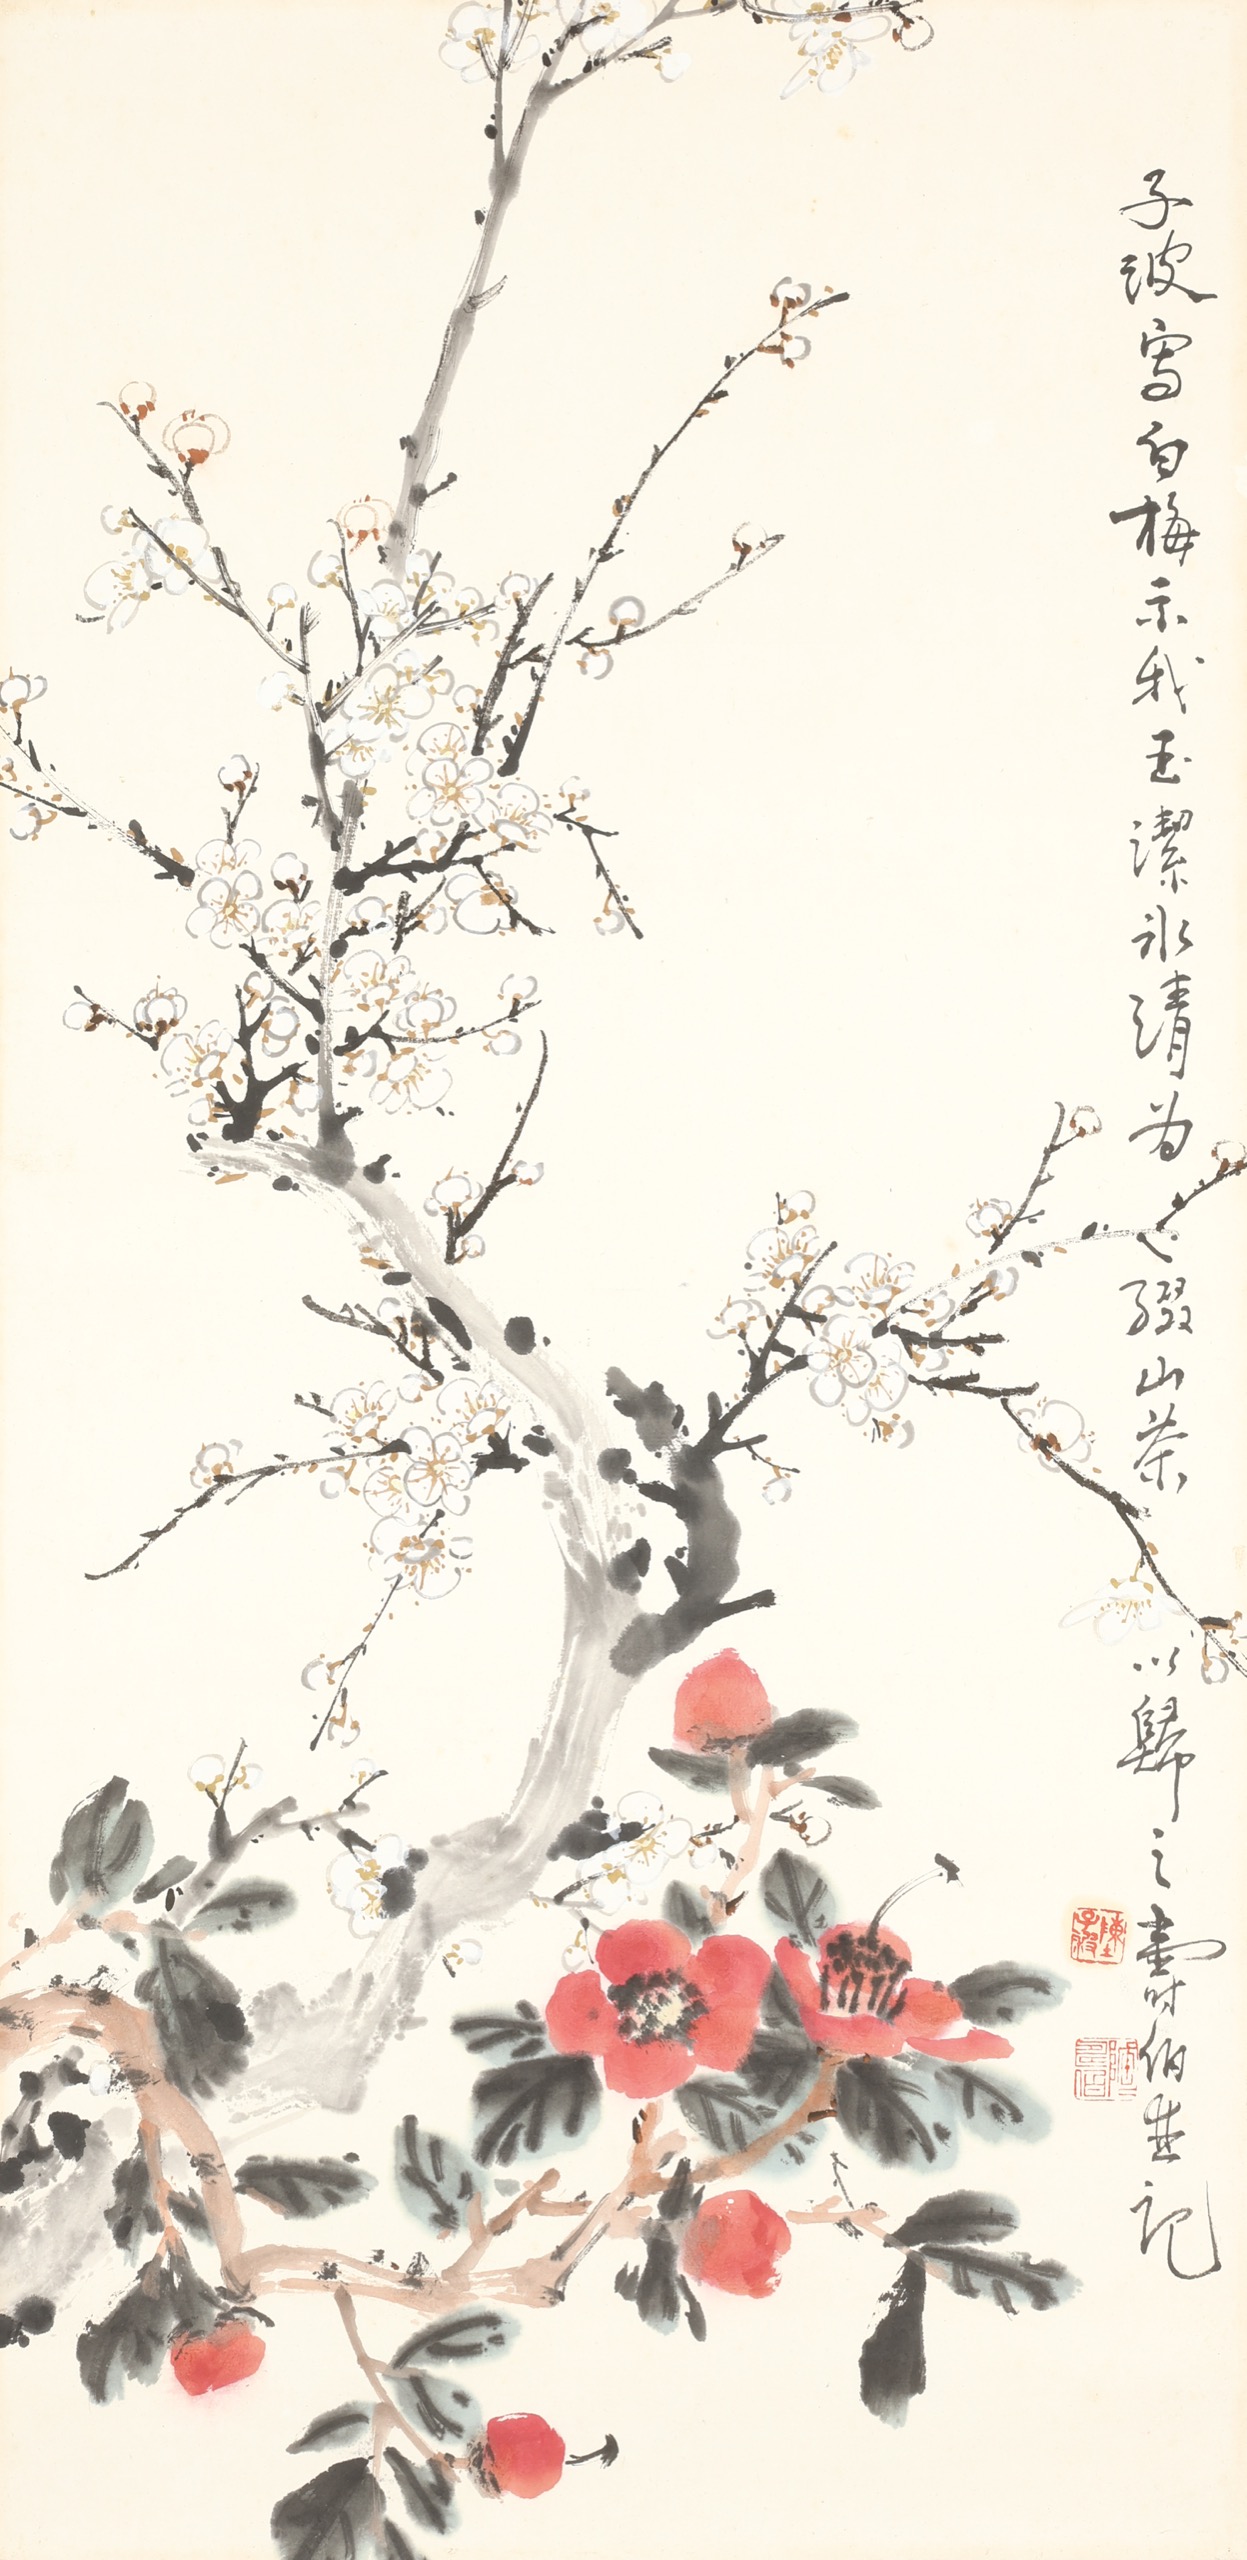 子波寫白梅示我玉潔冰清為之綴山茶以歸之壽時伯 記